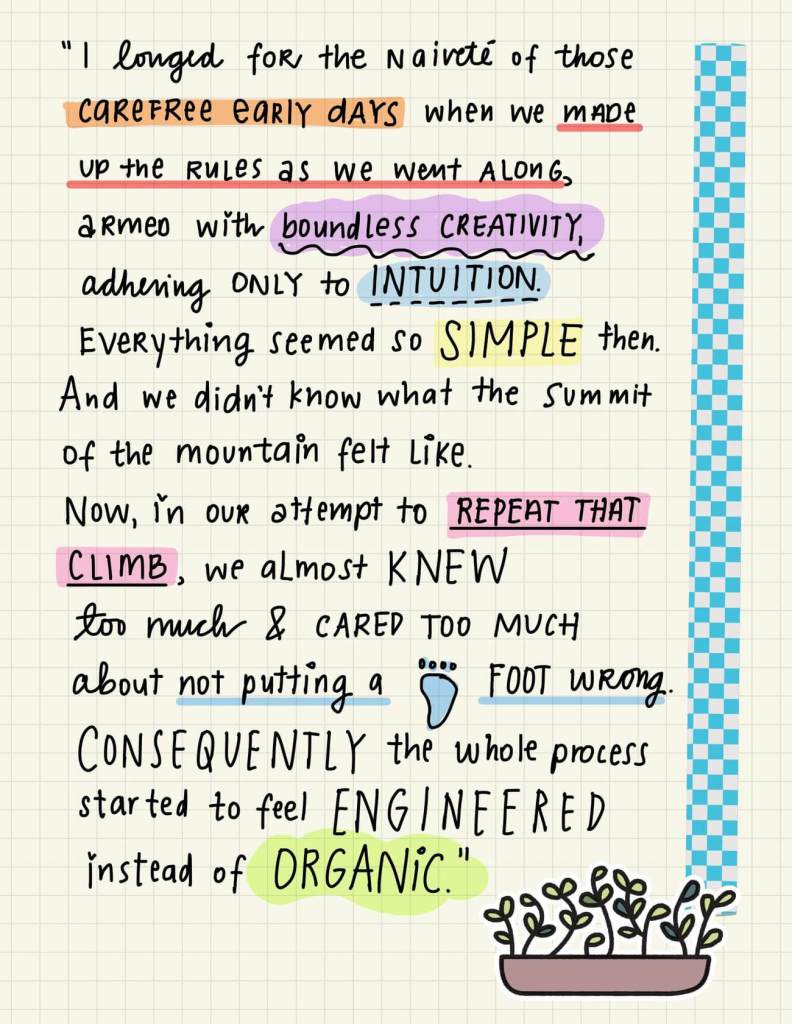 "I longed for the Naiveté of those
CAREFREE EARLY DAYS when we MADE
UP the RULES as we went ALONG,
ARMED with boundless CREATIVITY,
adhering ONLY to INTUITION.
EVERYthing seemed so SIMPLE then.
And we didn't know what the summit
of the mountain felt like.
Now, in our attempt to REPEAT THAT
CLIMB, we almost KNEW
too much & CARED TOO MUCH
about not putting a FOOT WRONG.
CONSEQUENTLY the whole process
started to feel ENGINEERED
instead of ORGANIC."